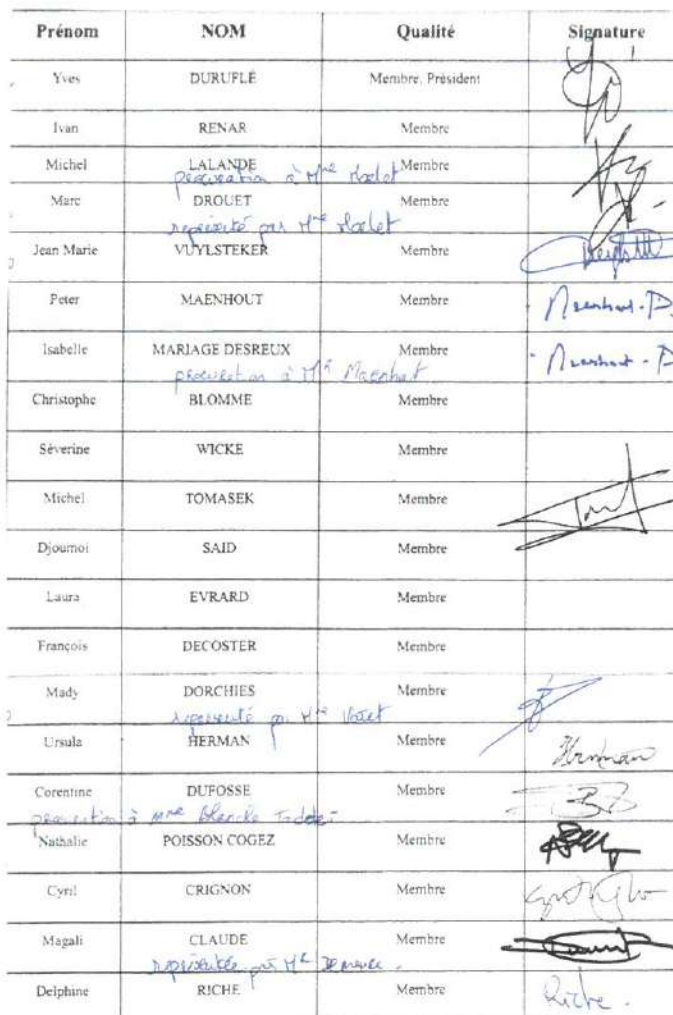 Prénom NOM Qualité Signature
Yves DURUFLÉ Membre, Président
Ivan RENAR Membre
Michel LALANDE Membre
procuration à Mme
Marc DROUET Membre
représenté par Mme
Jean Marie VUYLSTEKER Membre
Peter MAENHOUT Membre Maenhout - P.
Isabelle MARIAGE DESREUX Membre Maenhout - P
procuration à Mr Maenhout
Christophe BLOMME Membre
Séverine WICKE Membre
Michel TOMASEK Membre
Djoumoi SAID Membre
Laura EVRARD Membre
François DECOSTER Membre
Mady DORCHIES Membre
représenté par Mme
Ursula HERMAN Membre Herman
Corentine DUFOSSE Membre
procuration à Mme Blanche
Nathalie POISSON COGEZ Membre
Cyril CRIGNON Membre
Magali CLAUDE Membre
représentée par Mr
Delphine RICHE Membre Riche.